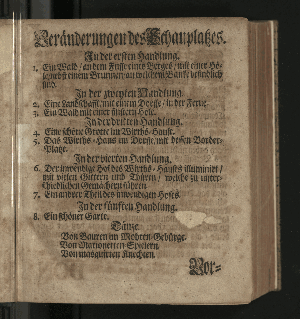 Veränderungen des Schauplatzes.
In der ersten Handlung.
1. Ein Wald / an dem Fusse eines Berges / mit einer Hö-
le / nebst einem Brunnen / an welchem Bänke befindlich
sind.
In der zweyten Handlung.
2. Eine Landschafft / mit einem Dorffe / in der Ferne.
3. Ein Wald mit einer finstern Höle.
In der dritten Handlung.
4. Eine schöne Grotte im Wirths-Hause.
5. Das Wirths-Haus im Dorffe, mit dessen Vorder-
Platze.
In der vierten Handlung.
6. Der inwendige Hof des Wirths-Hauses illuminirt /
mit vielen Gittern und Thüren / welche zu unter-
schiedlichen Gemächern führen.
7. Ein andrer Theil des inwendigen Hofes.
In der fünften Handlung.
8. Ein schöner Garte.
Tänze.
Von Bauren im Mohren-Gebürge.
Von Marionetten-Spielern.
Von masquirten Knechten.
Vor-